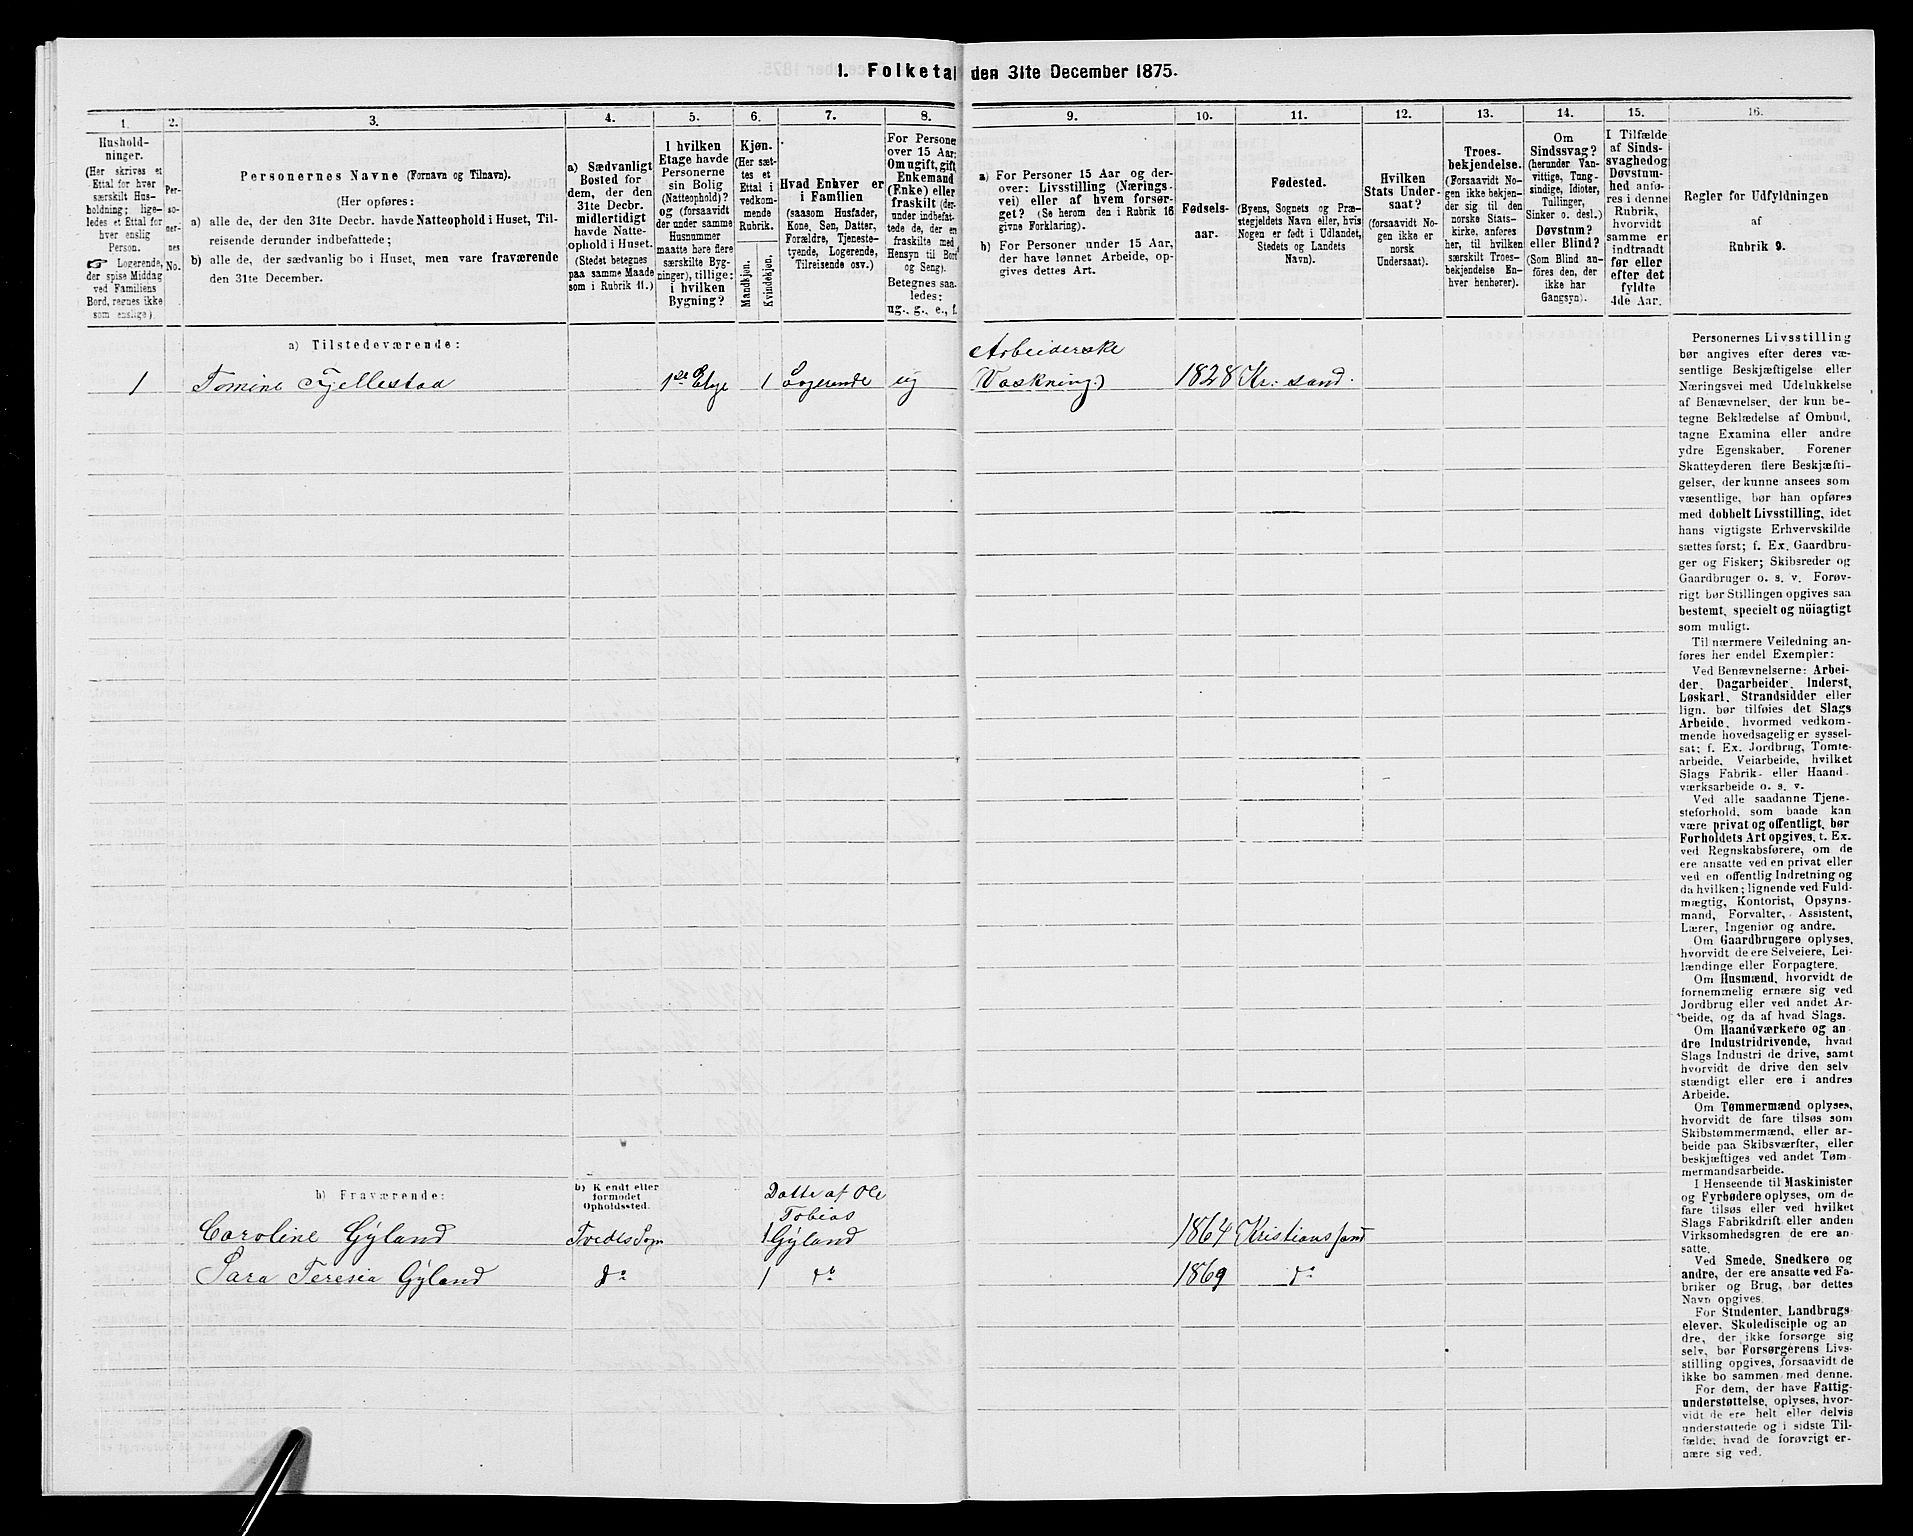 1. Folketal den 31te December 1875.
1.
Hushold-
ninger.
(Her skrives et
Ettal for hver
særskilt Hus-
holdning; lige-
ledes et Ettal for
hver enslig
Person.
☞ Logerende,
der spise Middag
ved Familiens
Bord, regnes ikke
som enslige).
2.
Per-
so-
ner-
nes
No.
3.
Personernes Navne (Fornavn og Tilnavn).
(Her opføres:
a) alle de, der den 31te Decbr. havde Natteophold i Huset, Til-
reisende derunder indbefattede;
b) alle de, der sædvanlig bo i Huset, men vare fraværende
den 31te December.
4.
a) Sædvanligt
Bosted for
dem, der den
31te Decbr.
midlertidigt
havde Natte-
ophold i Huset.
(Stedet betegnes
paa samme Maade
som i Rubrik 11.)
5.
I hvilken
Etage havde
Personerne
sin Bolig
(Natteophold)?
og (forsaavidt
der under samme
Husnummer
maatte høre flere
særskilte Byg-
ninger), tillige:
i hvilken
Bygning?
6.
Kjøn.
(Her sæt-
tes et
Ettal i
vedkom-
mende
Rubrik.
Mandkjøn.
Kvindekjøn.
7.
Hvad Enhver er
i Familien
(saasom Husfader,
Kone, Søn, Datter,
Forældre, Tjeneste-
tyende, Logerende,
Tilreisende osv.)
8.
For Personer
over 15 Aar:
Om ugift, gift,
Enkemand
(Enke) eller
fraskilt (der-
under indbefat-
tede de, der ere
fraskilte med
Hensyn til Bord
og Seng).
Betegnes saa-
ledes:
ug., g., e., f.
9.
a) For Personer 15 Aar og der-
over: Livsstilling (Nærings-
vei) eller af hvem forsør-
get? (Se herom den i Rubrik 16
givne Forklaring).
b) For Personer under 15 Aar,
der have lønnet Arbeide, op-
gives dettes Art.
10.
Fødsels-
aar.
11.
Fødested.
(Byens, Sognets og Præ-
stegjeldets Navn eller, hvis
Nogen er født i Udlandet,
Stedets og Landets
Navn).
12.
Hvilken
Stats Under-
saat?
(forsaavidt No-
gen ikke er
norsk
Undersaat).
13.
Troes-
bekjendelse.
(Forsaavidt No-
gen ikke bekjen-
der sig til den
norske Stats-
kirke, anføres
her, til hvilken
særskilt Troes-
bekjendelse En-
hver henhører).
14.
Om
Sindssvag?
(herunder Van-
vittige, Tung-
sindige, Idioter,
Tullinger,
Sinker o. desl.)
Døvstum?
eller Blind?
(Som Blind an-
føres den, der
ikke har
Gangsyn).
15.
I Tilfælde
af Sinds-
svaghed og
Døvstum-
hed anfø-
res i denne
Rubrik,
hvorvidt
samme er
indtraadt
før eller
efter det
fyldte
4de Aar.
16.
Regler for Udfyldningen
af
Rubrik 9.
a) Tilstedeværende:
1 Tomine Fjellestad 1ste Etge 1 Logerende ug Arbeiderske
(Vaskning) 1828 Kr.sand.
b) Fraværende:
b) Kjendt eller
formodet
Opholdssted.
Datter af Ole
Tobias
Caroline Gyland Tvedts Sogn 1 Gyland 1864 Kristianssand
Sara Teresia Gyland do 1 do 1869 do
Personernes Livsstilling
bør angives efter deres væ-
sentlige Beskjæftigelse eller
Næringsvei med Udelukkelse
af Benævnelser, der kun be-
tegne Beklædelse af Ombud,
tagne Examina eller andre
ydre Egenskaber. Forener
Skatteyderen flere Beskjæfti-
gelser, der kunne ansees som
væsentlige, bør han opføres
med dobbelt Livsstilling, idet
hans vigtigste Erhvervskilde
sættes først; f. Ex. Gaardbru-
ger og Fisker; Skibsreder og
Gaardbruger o. s. v. Forøv-
rigt bør Stillingen opgives saa
bestemt, specielt og nöiagtigt
som muligt.
Til nærmere Veiledning an-
føres her endel Exempler:
Ved Benævnelserne: Arbei-
der, Dagarbeider, Inderst,
Løskarl, Strandsidder eller
lign. bør tilføies det Slags
Arbeide, hvormed vedkom-
mende hovedsagelig er syssel-
sat; f. Ex. Jordbrug, Tomte-
arbeide, Veiarbeide, hvilket
Slags Fabrik- eller Haand-
værksarbeide o. s. v.
Ved alle saadanne Tjene-
steforhold, som baade kan
være privat og offentligt, bør
Forholdets Art opgives, t. Ex.
ved Regnskabsførere, om de
ere ansatte ved en privat eller
ved en offentlig Indretning og
da hvilken; lignende ved Fuld-
mægtig, Kontorist, Opsyns-
mand, Forvalter, Assistent,
Lærer, Ingeniør og andre.
Om Gaardbrugere oplyses,
hvorvidt de ere Selveiere, Lei-
lændinge eller Forpagtere.
Om Husmænd, hvorvidt de
fornemmelig ernære sig ved
Jordbrug eller ved andet Ar-
beide, og da af hvad Slags.
Om Haandværkere og an-
dre Industridrivende, hvad
Slags Industri de drive, samt
hvorvidt de drive den selv-
stændigt eller ere i andres
Arbeide.
Om Tømmermænd oplyses,
hvorvidt de fare tilsøs som
Skibstømmermænd, eller ar-
beide paa Skibsværfter, eller
beskjæftiges ved andet Tøm-
mermandsarbeide.
I Henseende til Maskinister
og Fyrbødere oplyses, om de
fare tilsøs eller ved hvilket
Slags Fabrikdrift eller anden
Virksomhedsgren de ere an-
satte.
Ved Smede, Snedkere og
andre, der ere ansatte ved Fa-
briker og Brug, bør dettes
Navn opgives.
For Studenter, Landbrugs-
elever, Skoledisciple og an-
dre, der ikke forsørge sig
selv, bør Forsørgerens Livs-
stilling opgives, forsaavidt de
ikke bo sammen med denne.
For dem, der have Fattig-
understøttelse, oplyses, hvor-
vidt de ere helt eller delvis
understøttede og i sidste Til-
fælde, hvad de forøvrigt er-
nære sig ved.